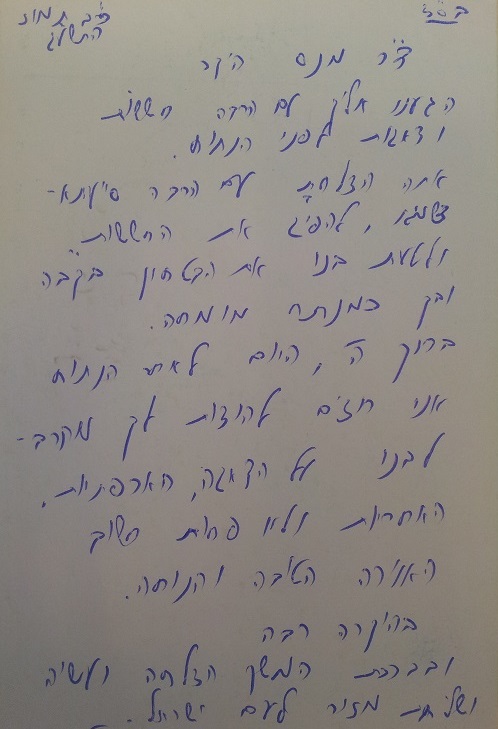 בס"ד
כ"ב תמוז
התשע"ג
ד"ר מנס היקר
הגענו אליך עם הרבה חששות
ודאגות לפני הניתוח.
אתה הצלחת עם הרבה סייעתא-
דשמיא, להפיג את החששות
ולטעת בנו את הבטחון בקב"ה
ובך כמנתח מומחה.
ברוך ה', היום לאחר הנתוח
אנו רוצים להודות לך מקרב-
לבנו על הדאגה, האכפתיות,
האחריות ולא פחות חשוב
האוירה הטובה והנוחה.
בהוקרה רבה
ובברכת המשך הצלחה ועשיה
ושליחות מזור לעם ישראל.